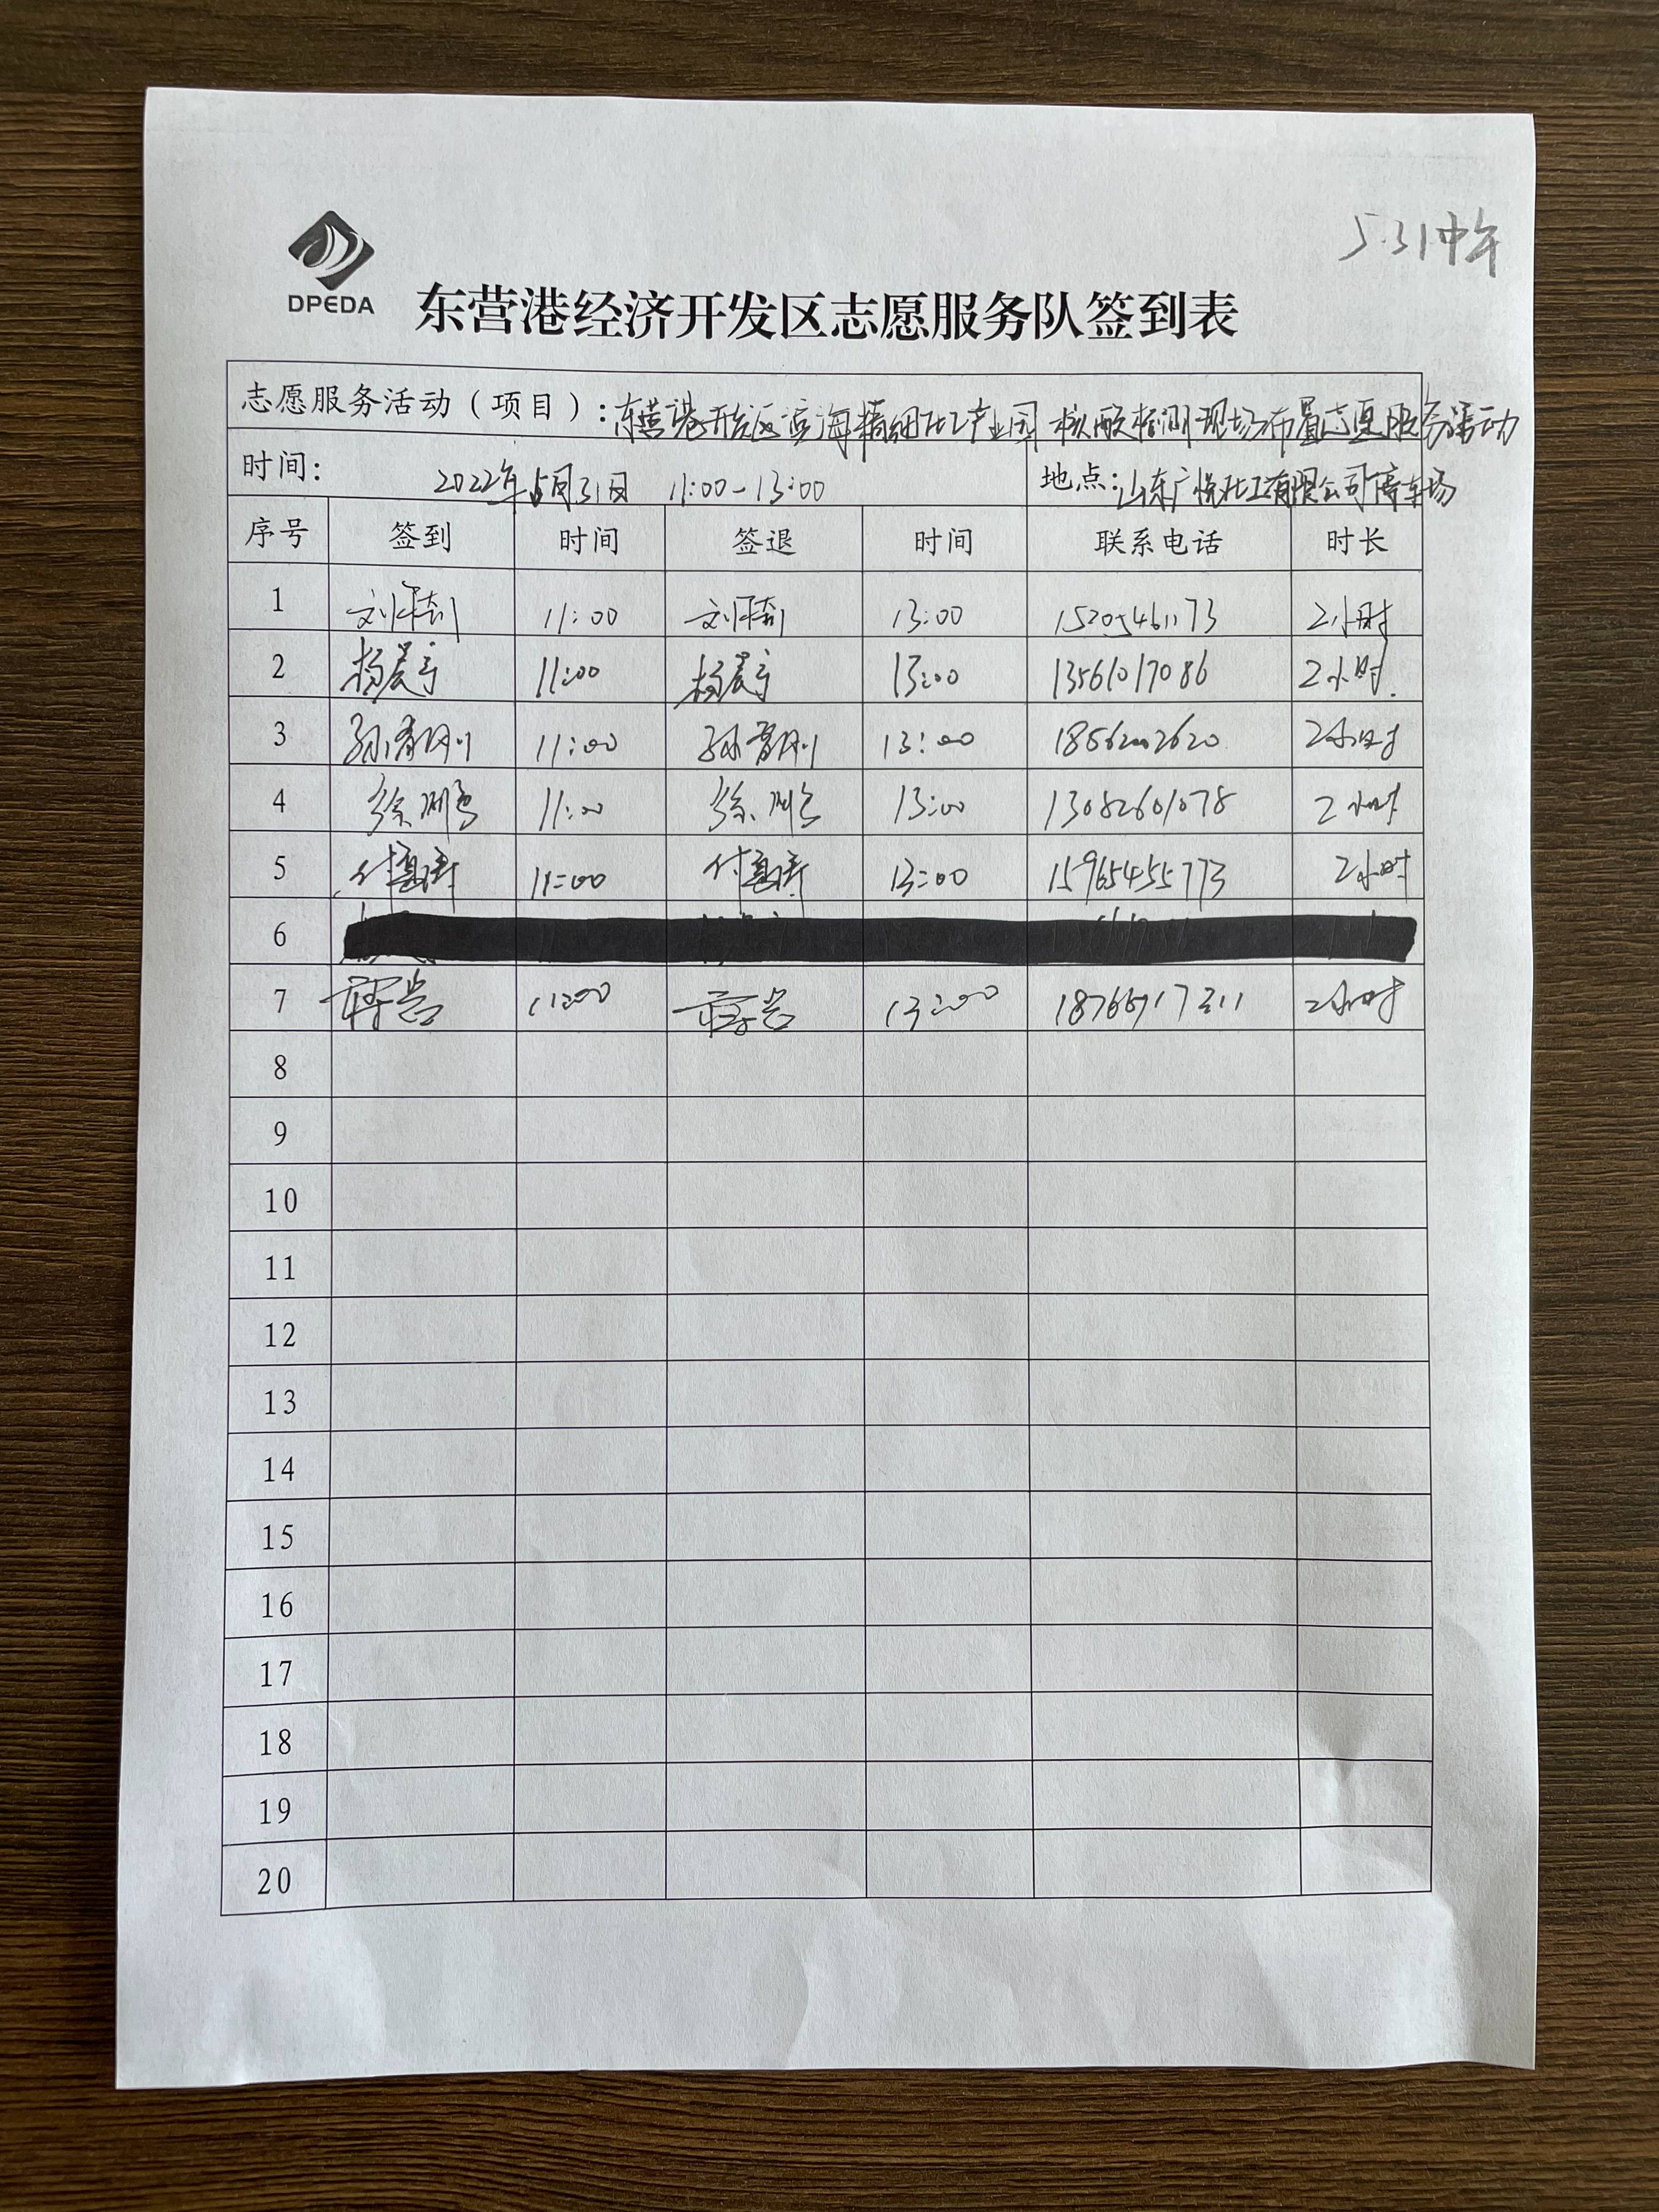 5.31中午
DPEDA
东营港经济开发区志愿服务队签到表
志愿服务活动（项目）：东营港开发区滨海精细化工产业园 核酸检测现场布置志愿服务活动
时间： 2022年5月31日 11:00-13:00 地点：山东广悦化工有限公司停车场
序号 签到 时间 签退 时间 联系电话 时长
1 11:00 13:00 15205461173 2小时
2 杨晨宇 11:00 杨晨宇 13:00 13561017086 2小时.
3 11:00 13:00 2小时
4 11:00 13:00 13082601078 2小时
5 11:00 13:00 15965455773 2小时
6
7 11:00 13:00 2小时
8
9
10
11
12
13
14
15
16
17
18
19
20